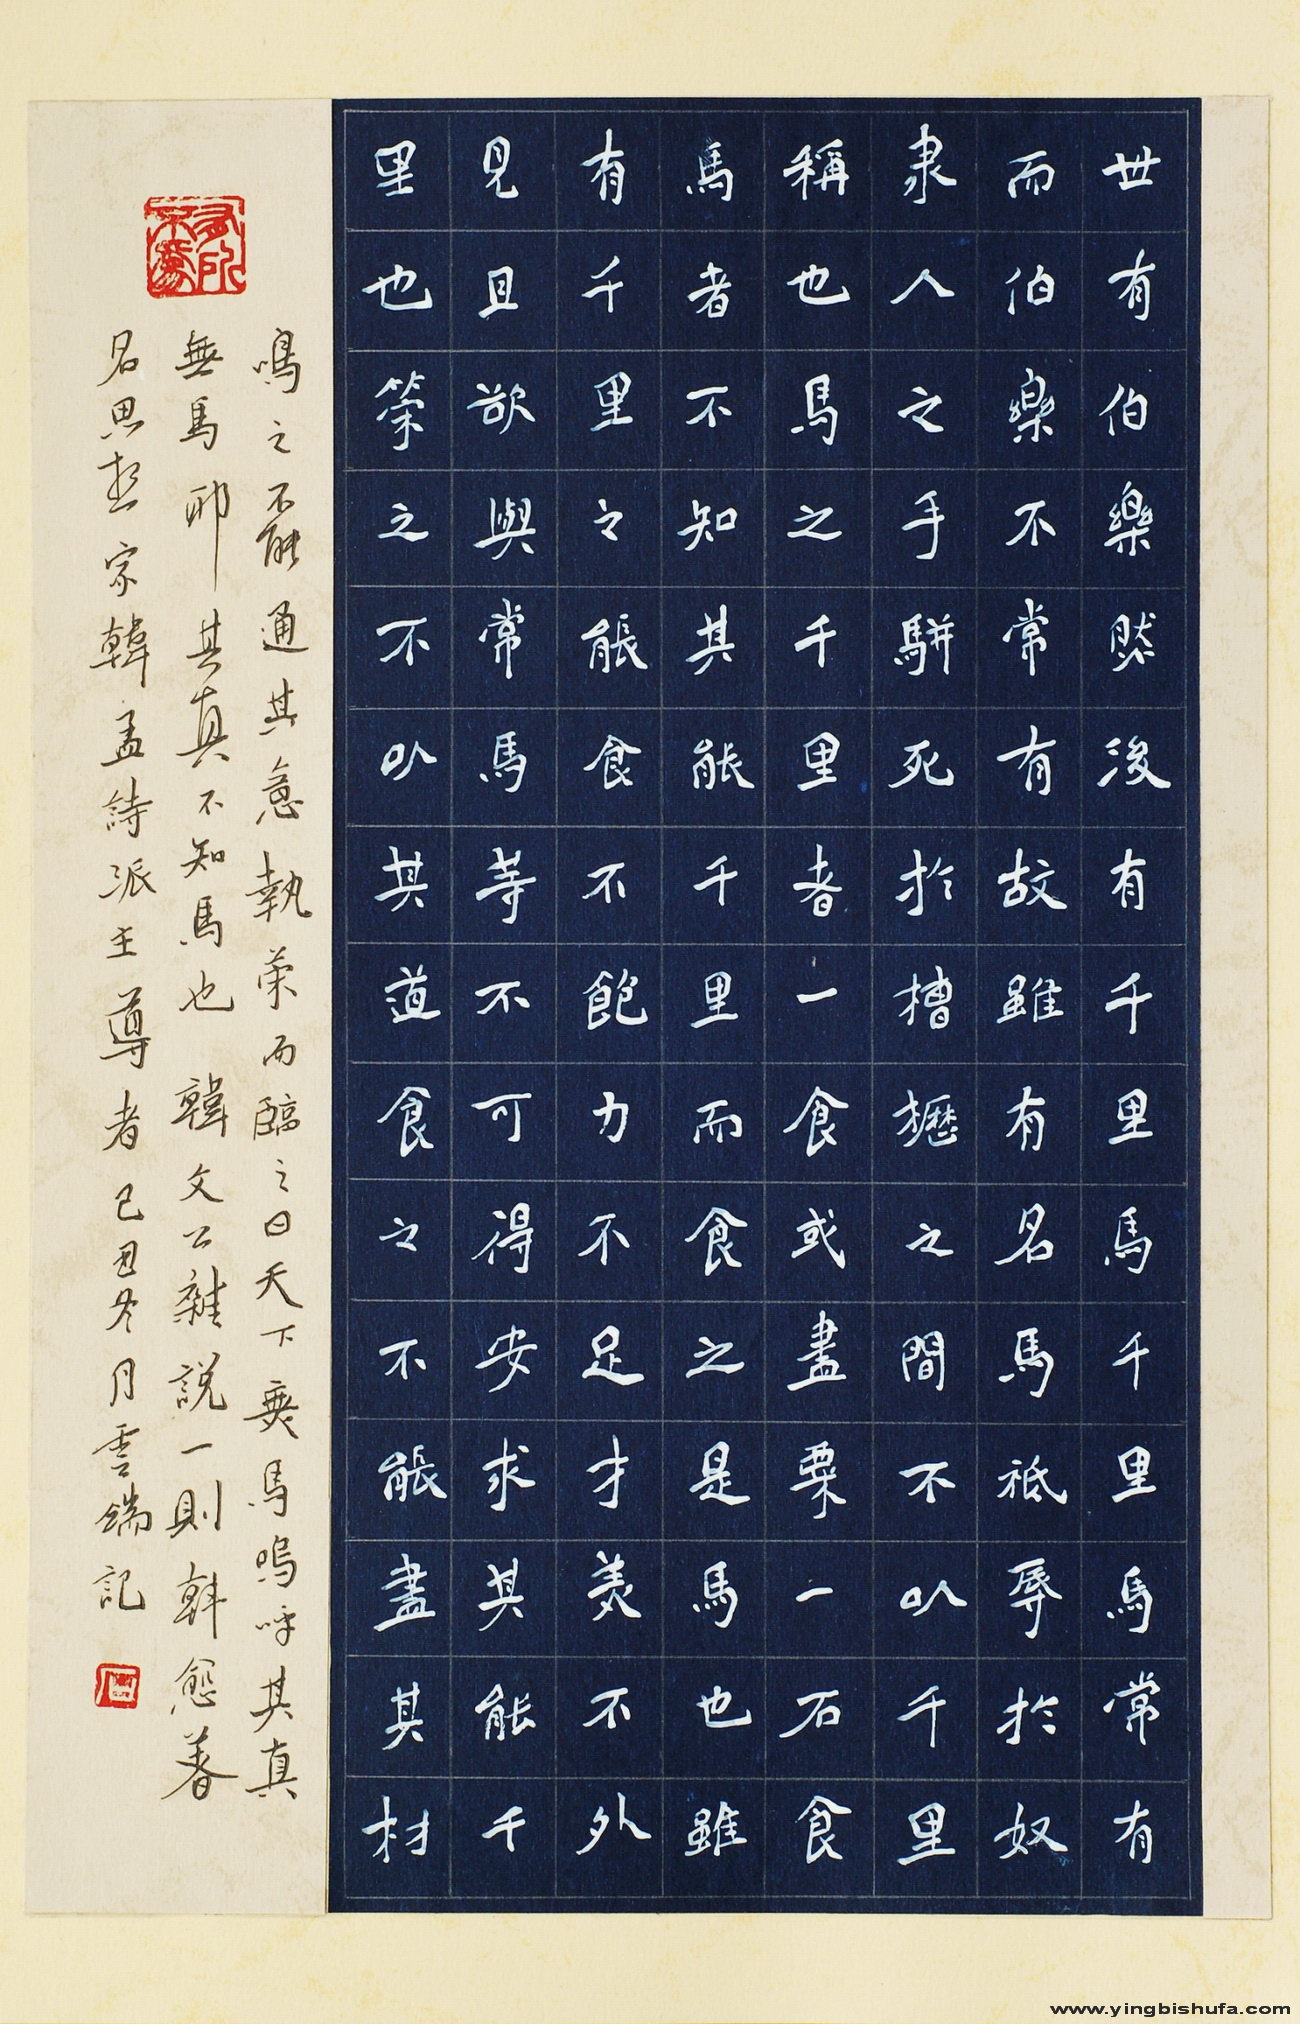 世有伯樂然後有千里馬千里馬常有
而伯樂不常有故雖有名馬祇辱於奴
隶人之手駢死於槽櫪之間不以千里
稱也馬之千里者一食或盡粟一石食
馬者不知其能千里而食之是馬也雖
有千里之能食不飽力不足才美不外
見且欲與常馬等不可得安求其能千
里也策之不以其道食之不能盡其材
鳴之不能通其意執策而臨之曰天下無馬嗚呼其真
無馬邪其真不知馬也 韓文公雜説一則韓愈著
名思想家韓孟詩派主導者己丑冬月雲端記
有所不爲
www.yingbishufa.com